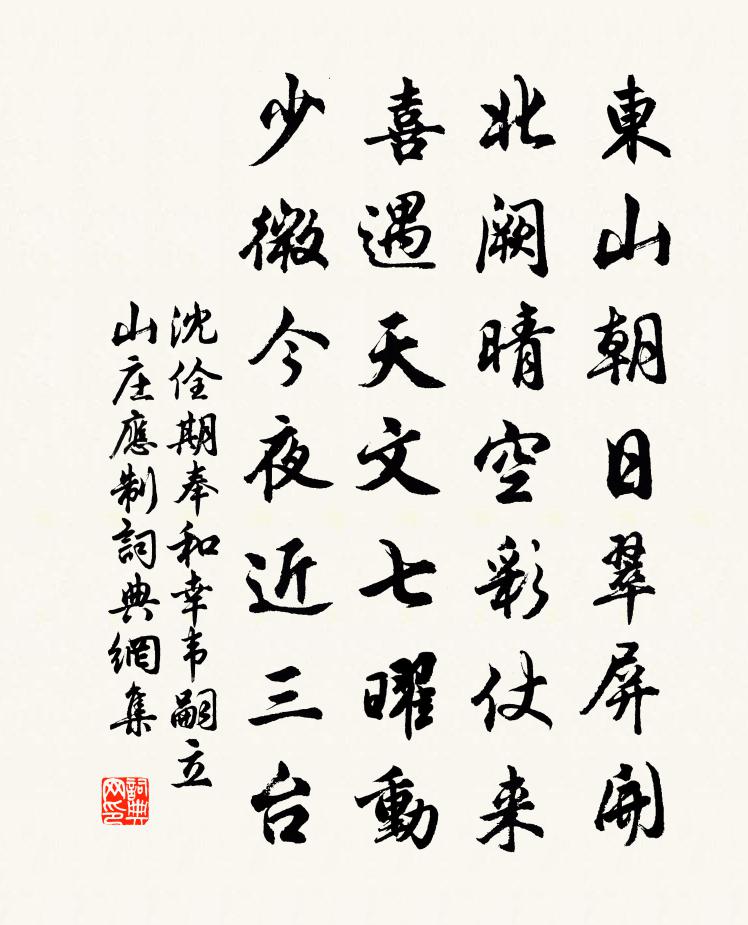 東山朝日翠屏開
北闕晴空彩仗来
喜遇天文七曜動
少微今夜近三台
沈佺期奉和幸韦嗣立
山庄應制詞典網集
詞典网印